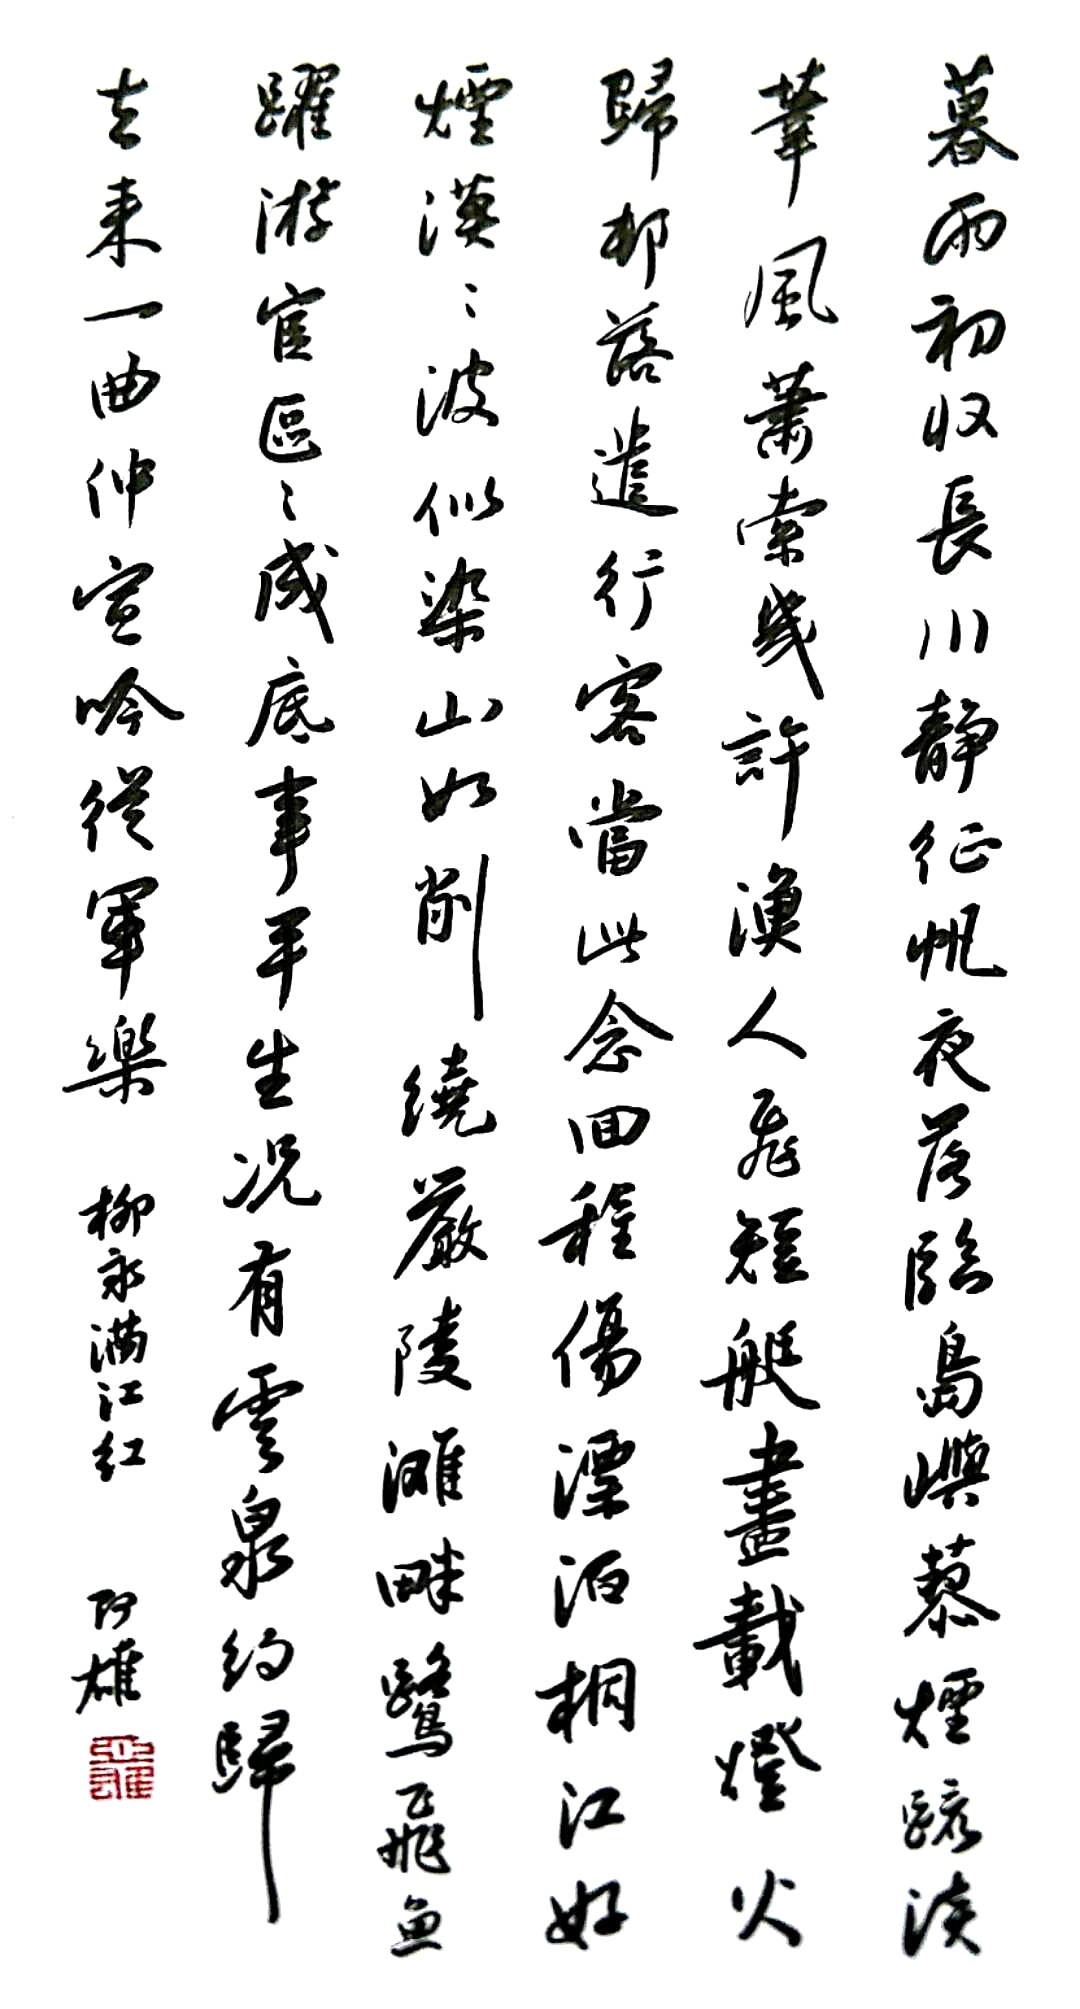 暮雨初收長川靜征帆夜落臨島嶼蓼煙疏淡
葦風蕭索幾許漁人飛短艇畫載燈火
歸邨落遣行客當此念回程傷漂泊桐江好
煙漠〻波似染山如削繞嚴陵灘畔鷺飛魚
躍游宦區〻成底事平生況有雲泉約歸
去來一曲仲宣吟從軍樂 柳永滿江紅 阿雄